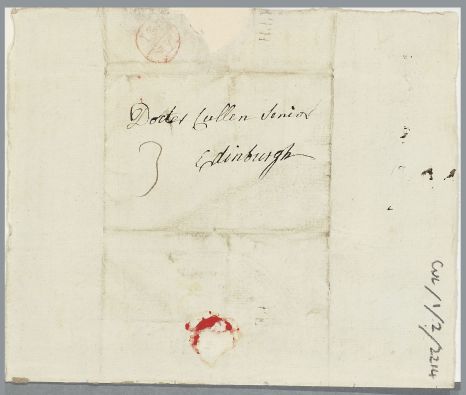 Doctor Cullen Senior
3
Edinburgh
CUL/1/2/2214